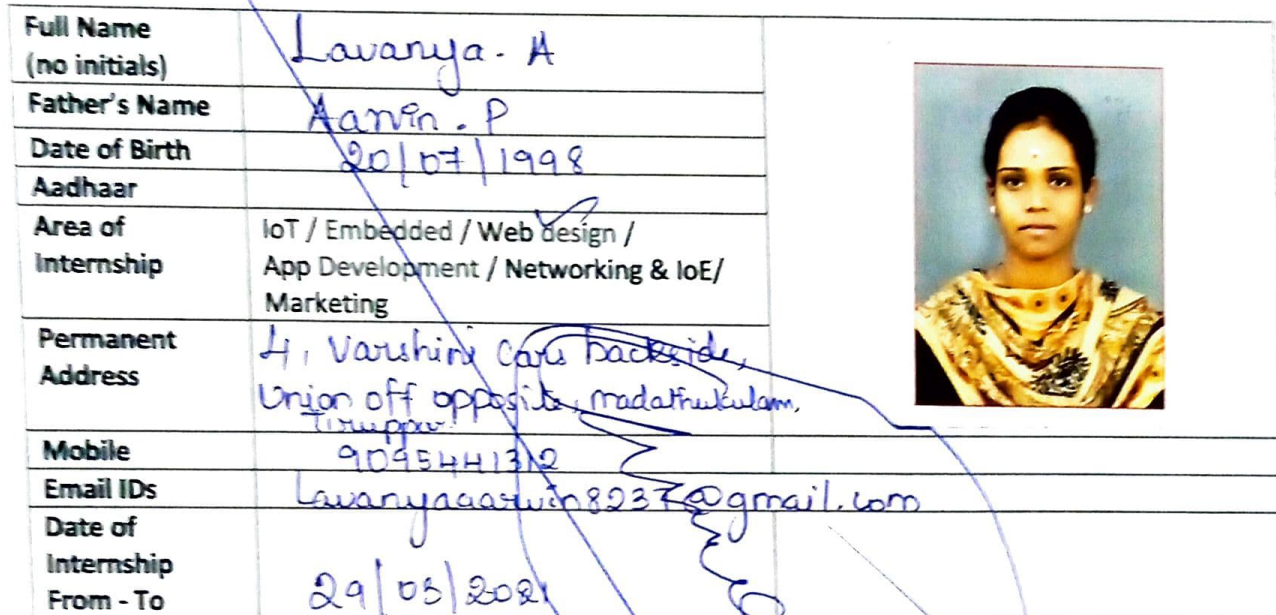 Full Name
(no initials)
Lavanya. A
Father's Name
Aarvin. P
Date of Birth
20/07/1998
Aadhaar
Area of
Internship
IoT / Embedded / Web design /
App Development / Networking & IoE/
Marketing
Permanent
Address
4, Varshini Cars backside,
Union off opposite, madathukulam,
Tiruppur.
Mobile
9095441312
Email IDs
Lavanyaaarvin8237@gmail.com
Date of
Internship
From - To
29/03/2021